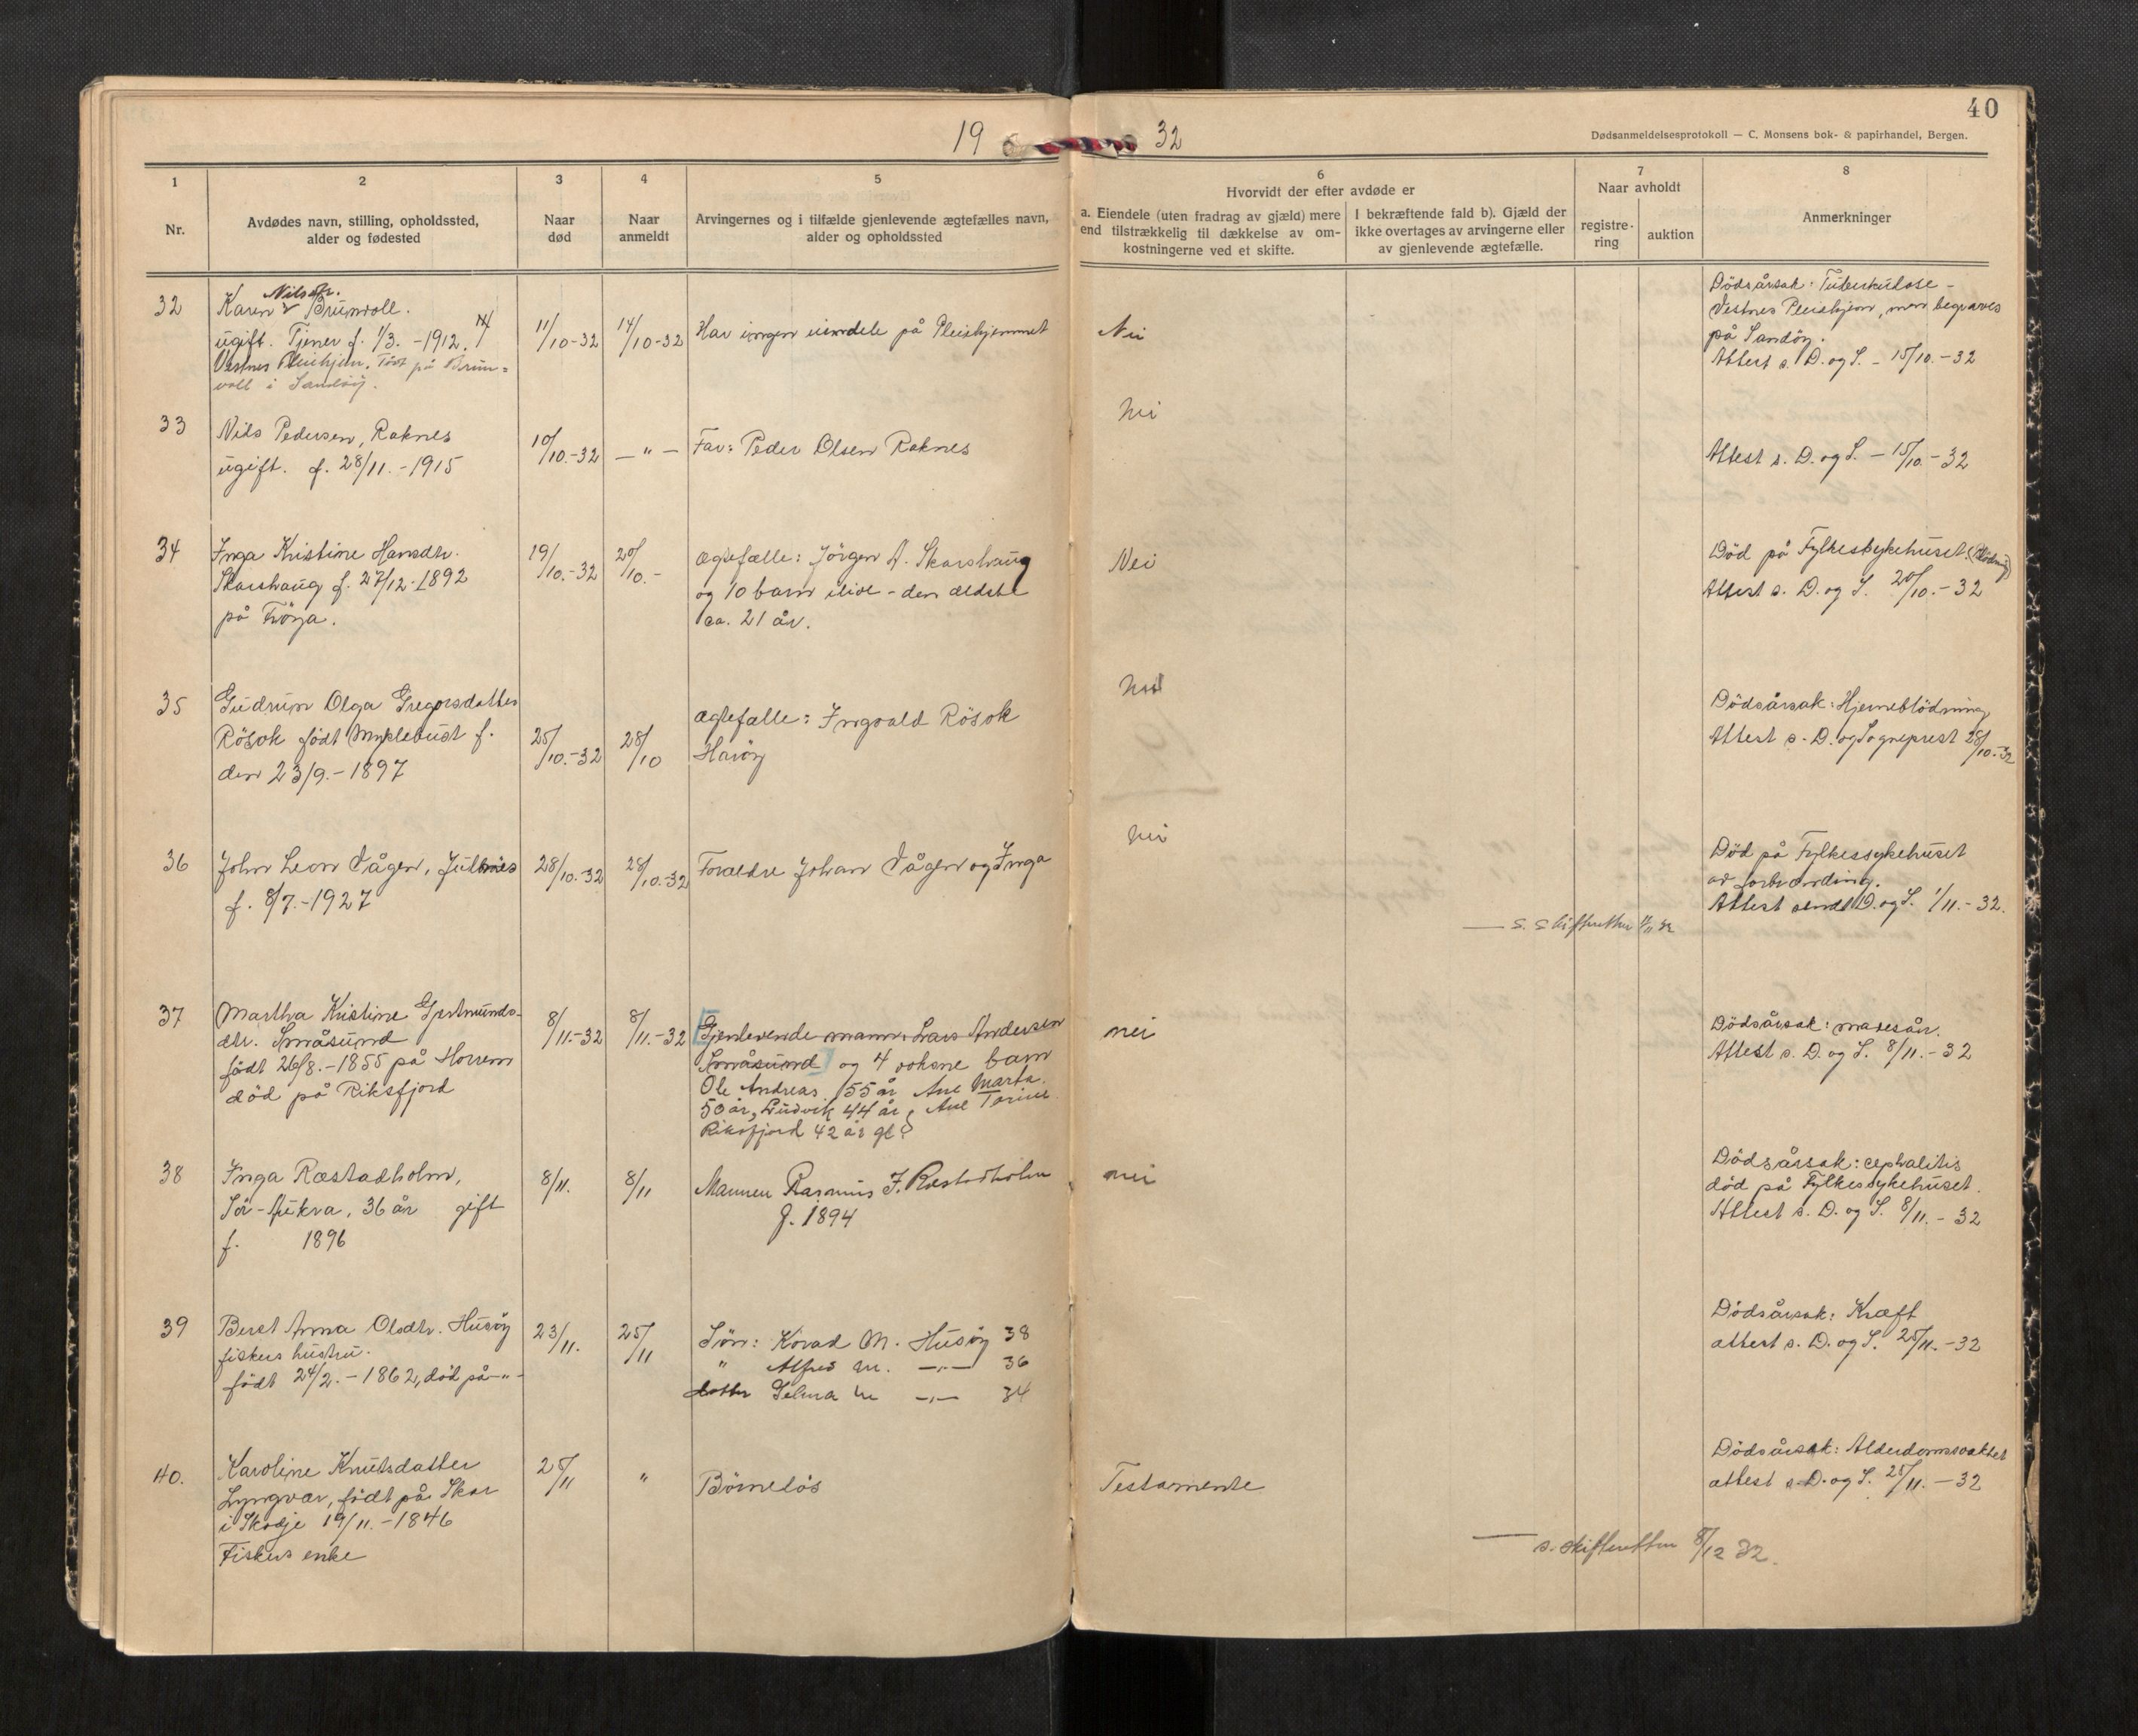 40
Dødsanmeldelsesprotokoll — C. Monsens bok- & papirhandel, Bergen.
19 32
1
2
3
4
5
6
7
8
Nr.
Avdødes navn, stilling, opholdssted,
alder og fødested
Naar
død
Naar
anmeldt
Arvingernes og i tilfælde gjenlevende ægtefælles navn,
alder og opholdssted
Hvorvidt der efter avdøde er
a. Eiendele (uten fradrag av gjæld) mere
end tilstrækkelig til dækkelse av om-
kostningerne ved et skifte.
I bekræftende fald b). Gjæld der
ikke overtages av arvingerne eller
av gjenlevende ægtefælle.
Naar avholdt
registre-
ring
auktion
Anmerkninger
32
Nilsdtr.
Karen Brunvoll.
ugift. Tjener f. 1/3. - 1912.
Vestnes Pleiehjem. Født på Brun=
voll i Sandöy.
11/10-32
14/10-32
Har ingen eiendele på Pleiehjemmet
Nei
Dödsårsak: Tuberkulose -
Vestnes Pleiehjem, men begraves
på Sandöy.
Attest s. D. og S. - 15/10. - 32
33
Nils Pedersen, Raknes
ugift. f. 28/11. - 1915
10/10.-32
— " —
Far: Peder Olsen Raknes
Nei
Attest s. D. og S. - 15/10. - 32
34
Inga Kristine Hansdtr.
Skarshaug f. 27/12-1892
på Fröya.
19/10.-32
20/10.-
Ægtefælle: Jörgen A. Skarshaug
og 10 barn ilive - den ældste
ca. 21 år.
Nei
Död på Fylkessykehuset
Attest s. D. og S. 20/10. - 32
35
Gudrun Olga Gregorsdatter
Rösok født Myklebust f.
den 23/9. - 1897
25/10.-32
28/10
Ægtefælle: Ingvald Rösok
Haröy
Nei
Dödsårsak: Hjerneblödning
Attest s. D. og Sogneprest 28/10.-32
36
John Leon Vågen, Julnes
f. 8/7. - 1927
28/10.-32
28/10.-32
Forældre Johan Vågen og Inga
Nei
Död på Fylkessykehuset
av forbrænding.
Attest sendt D. og S. 1/11. - 32.
— s. skifteretten
37
Martha Kristine Gjertmunds-
dtr. Småsund
født 26/8. - 1855 på Horrem
død på Riksfjord
8/11.-32
8/11.-32
Gjenlevende mann Lars Andersen
Småsund og 4 voksne barn
Ole Andreas 55 år Ane Marta
50 år, Ludvik 44 år, Ane Torine
Riksfjord 42 år gl.
nei
Dödsårsak: mavesår.
Attest s. D. og S. 8/11. - 32
38
Inga Ræstadholm,
Sör-Aukra, 36 år gift
f. 1896
8/11.
8/11
Mannen Rasmus J. Ræstadholm
f. 1894
nei
Dödsårsak: cephalitis
död på Fylkessykehuset.
Attest s. D. og S. 8/11. - 32
39
Beret Anna Olsdtr. Husöy
fiskers hustru.
født 24/2. - 1862, död på -"-
23/11.
25/11
Sön: Konrad M. Husöy 38
" Alfred M. -"- 36
datter Selma M -"- 34
Dödsårsak: Kræft
attest s. D. og S. 25/11. - 32
40.
Karoline Knutsdatter
Lyngvær, født på Skar
i Skodje 19/11. - 1846
Fiskers enke
25/11
"
Börnelös
Testamente
Dödsårsak: Alderdomssvakhet
attest s. D. og S. 25/11. - 32
— s. skifteretten 8/12 32.